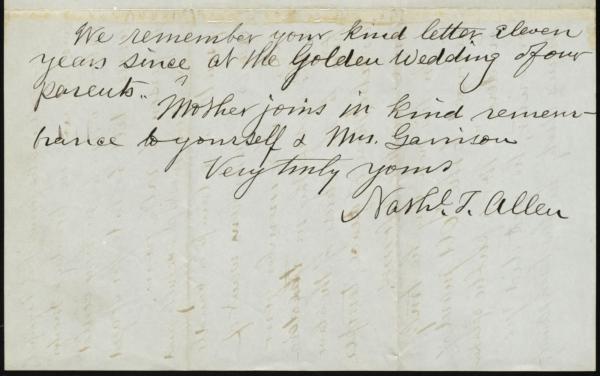 We remember your kind letter eleven
years since at the Golden Wedding of our
parents.
Mother joins in kind remem-
brance to yourself & Mrs. Garrison
Very truly yours
Nathl. T. Allen